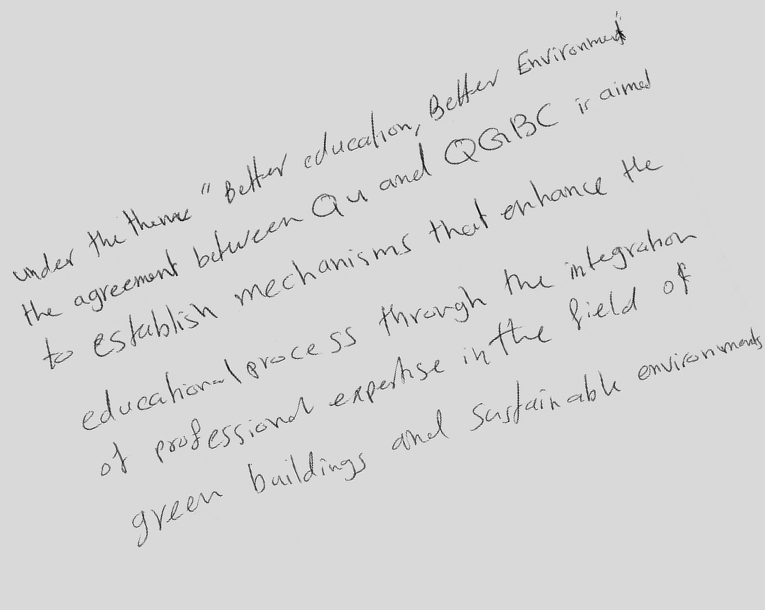 under the theme " Better education, Better Environment
the agreement between QU and QGBC is aimed
to establish mechanisms that enhance the
educational process through the integration
of professional expertise in the field of
green buildings and sustainable environments